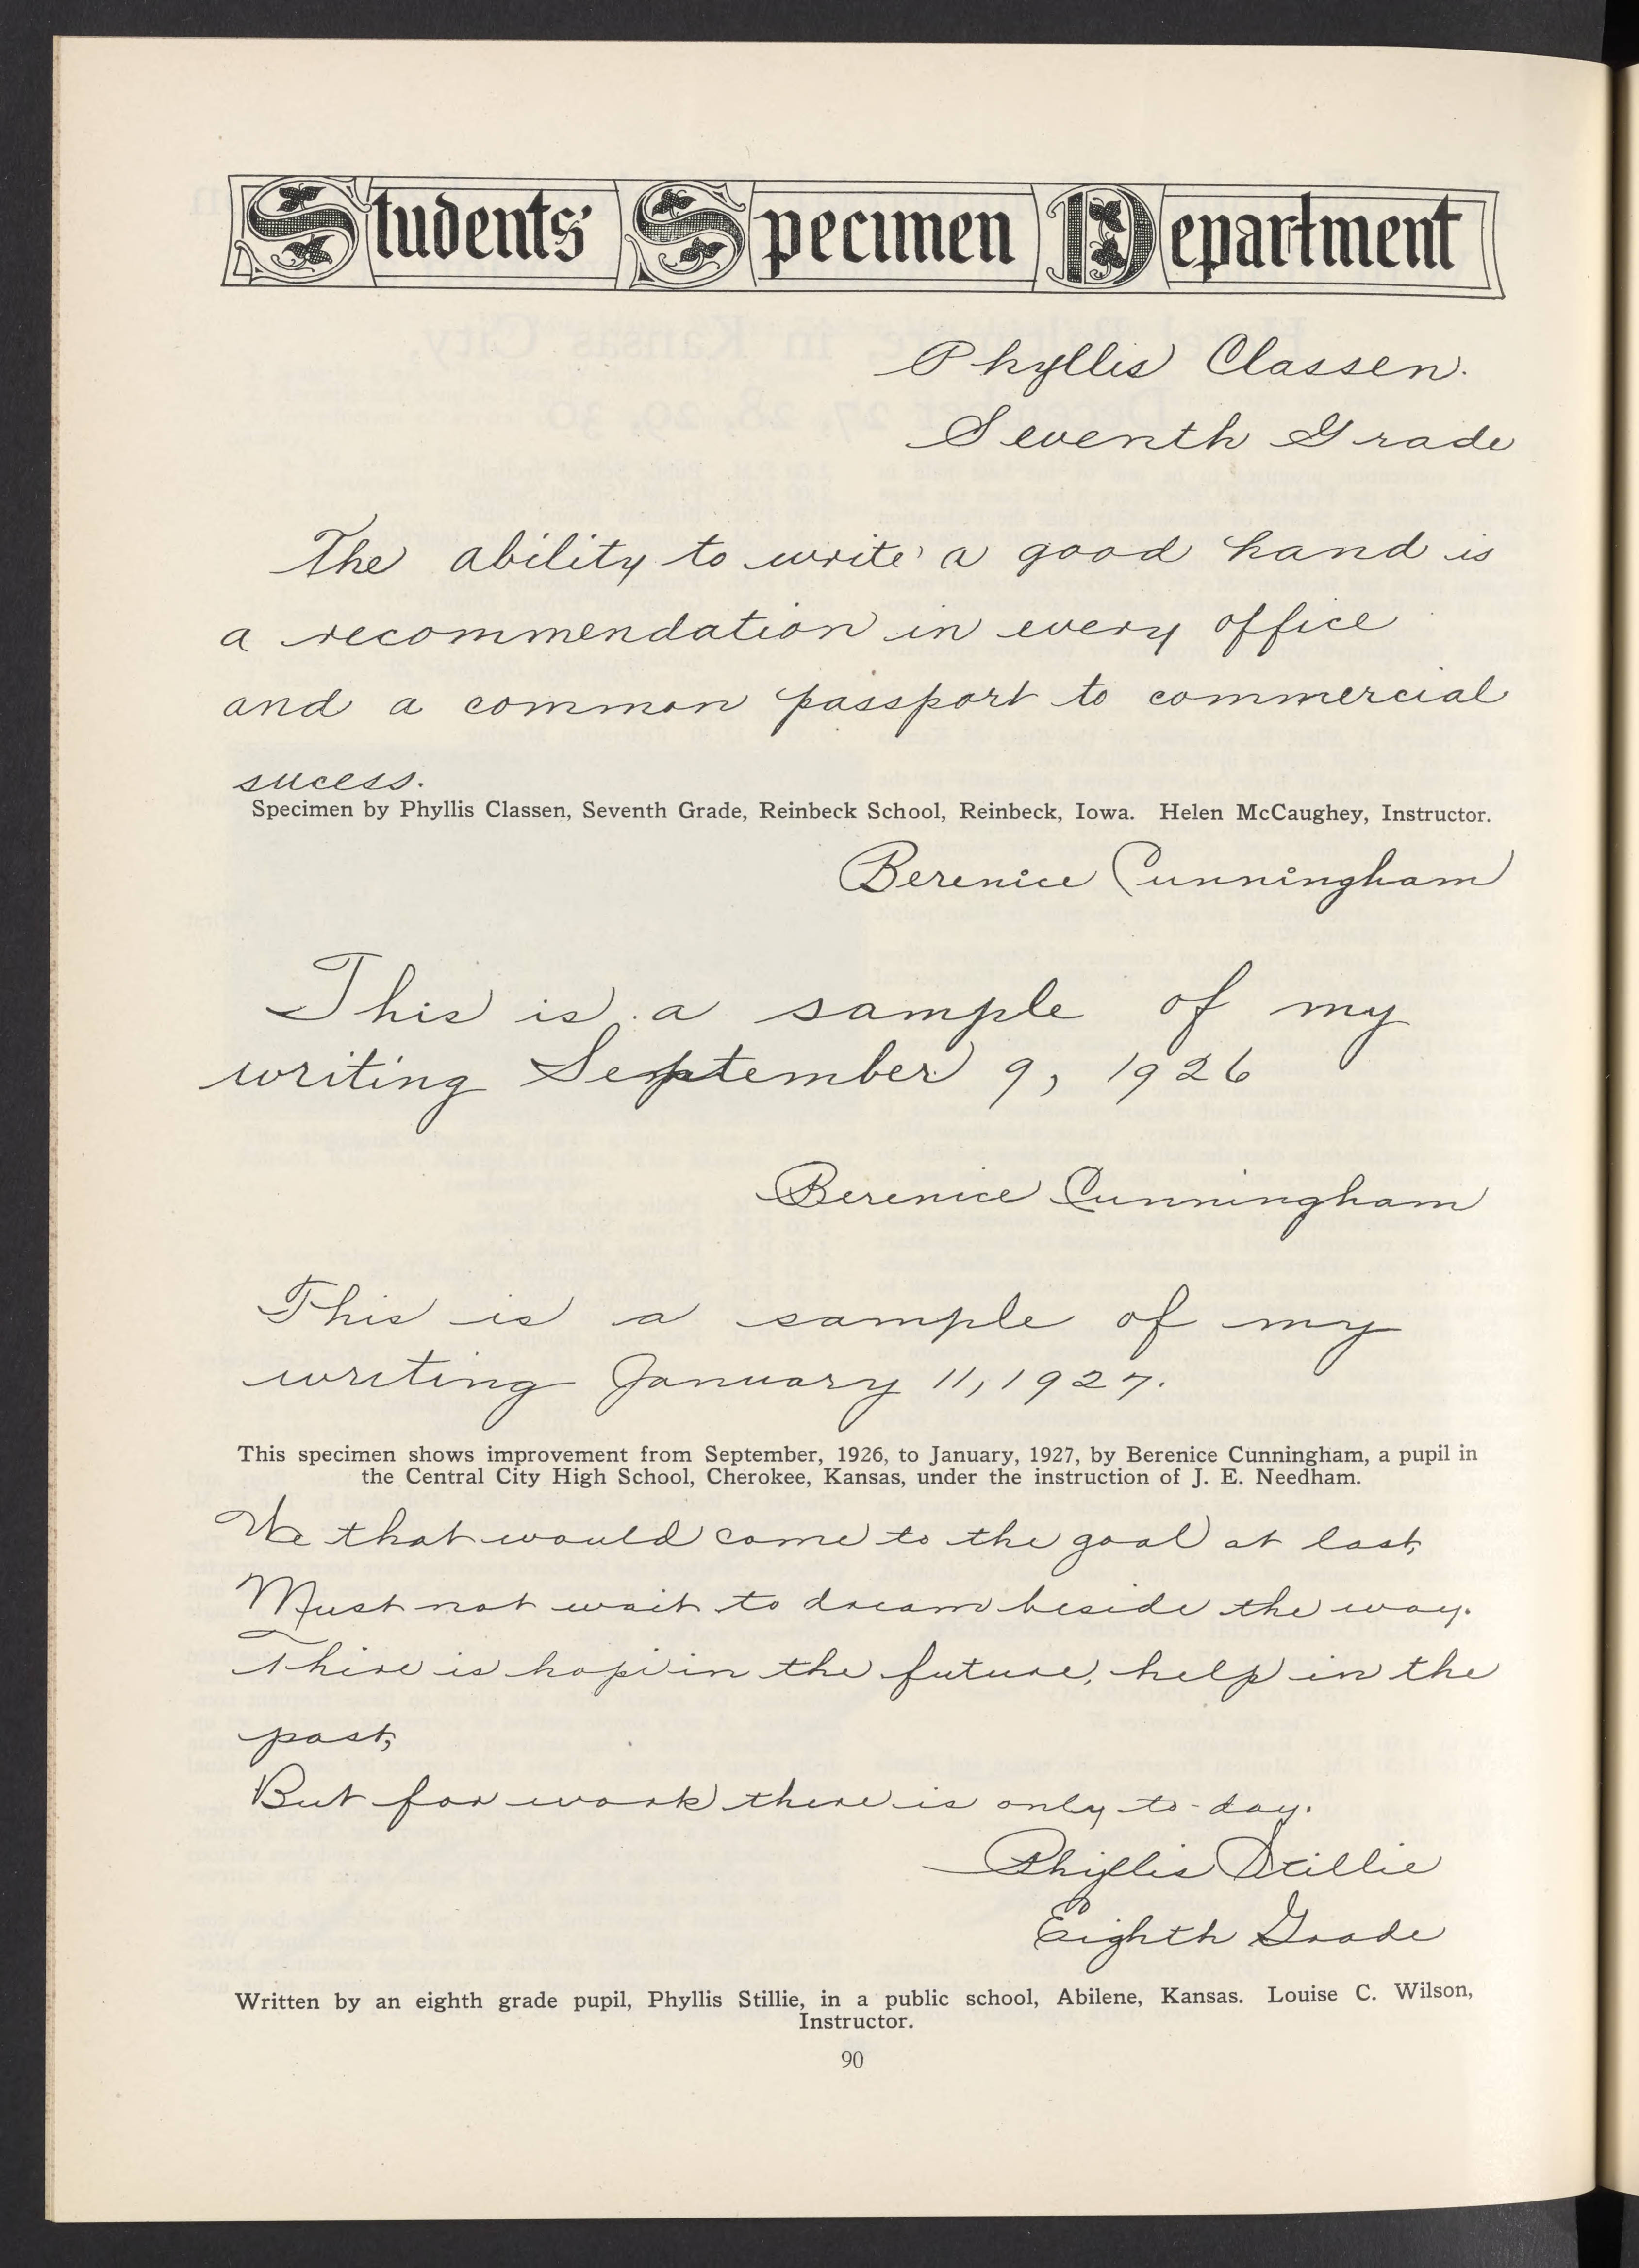 Students' Specimen Department
Phyllis Classen.
Seventh Grade
The ability to write a good hand is
a recommendation in every office
and a common passport to commercial
sucess.
Specimen by Phyllis Classen, Seventh Grade, Reinbeck School, Reinbeck, Iowa. Helen McCaughey, Instructor.
Berenice Cunningham
This is a sample of my
writing September 9, 1926
Berenice Cunningham
This is a sample of my
writing January 11, 1927.
This specimen shows improvement from September, 1926, to January, 1927, by Berenice Cunningham, a pupil in
the Central City High School, Cherokee, Kansas, under the instruction of J. E. Needham.
We that would come to the goal at last,
Must not wait to dream beside the way.
There is hope in the future, help in the
past,
But for work there is only to-day.
Phyllis Stillie
Eighth Grade
Written by an eighth grade pupil, Phyllis Stillie, in a public school, Abilene, Kansas. Louise C. Wilson,
Instructor.
90